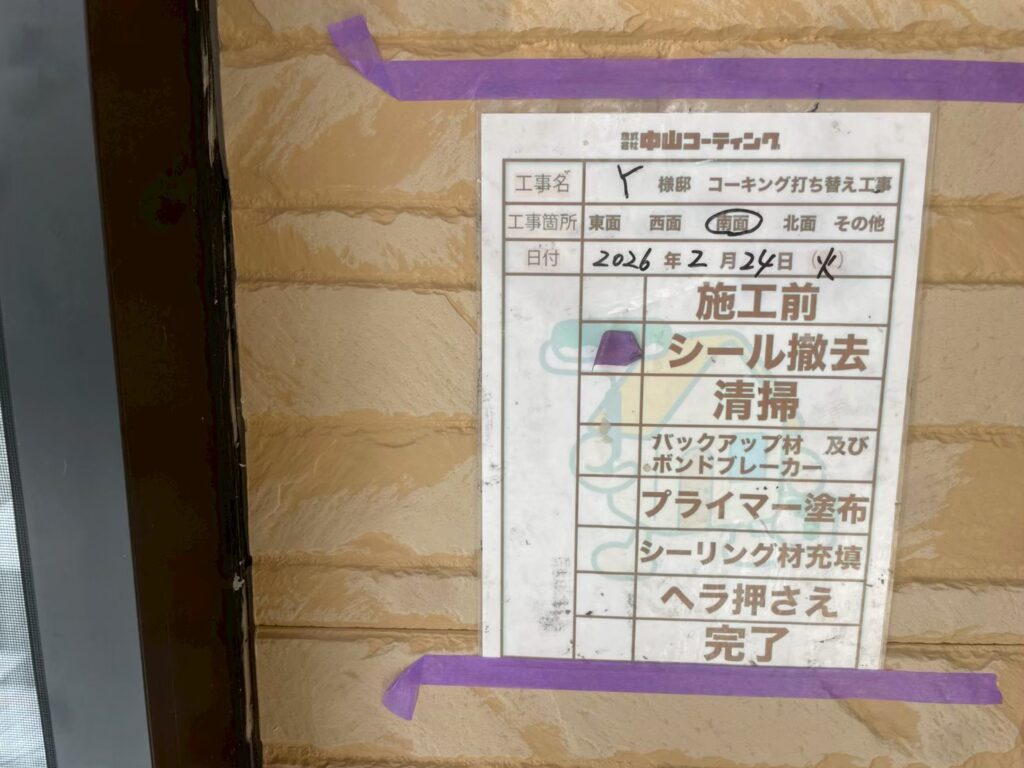 株式会社 中山コーティング
工事名 Y 様邸 コーキング打ち替え工事
工事箇所 東面 西面 南面 北面 その他
日付 2026 年 2 月 24 日 (火)
施工前
シール撤去
清掃
バックアップ材 及び
ボンドブレーカー
プライマー塗布
シーリング材充填
ヘラ押さえ
完了